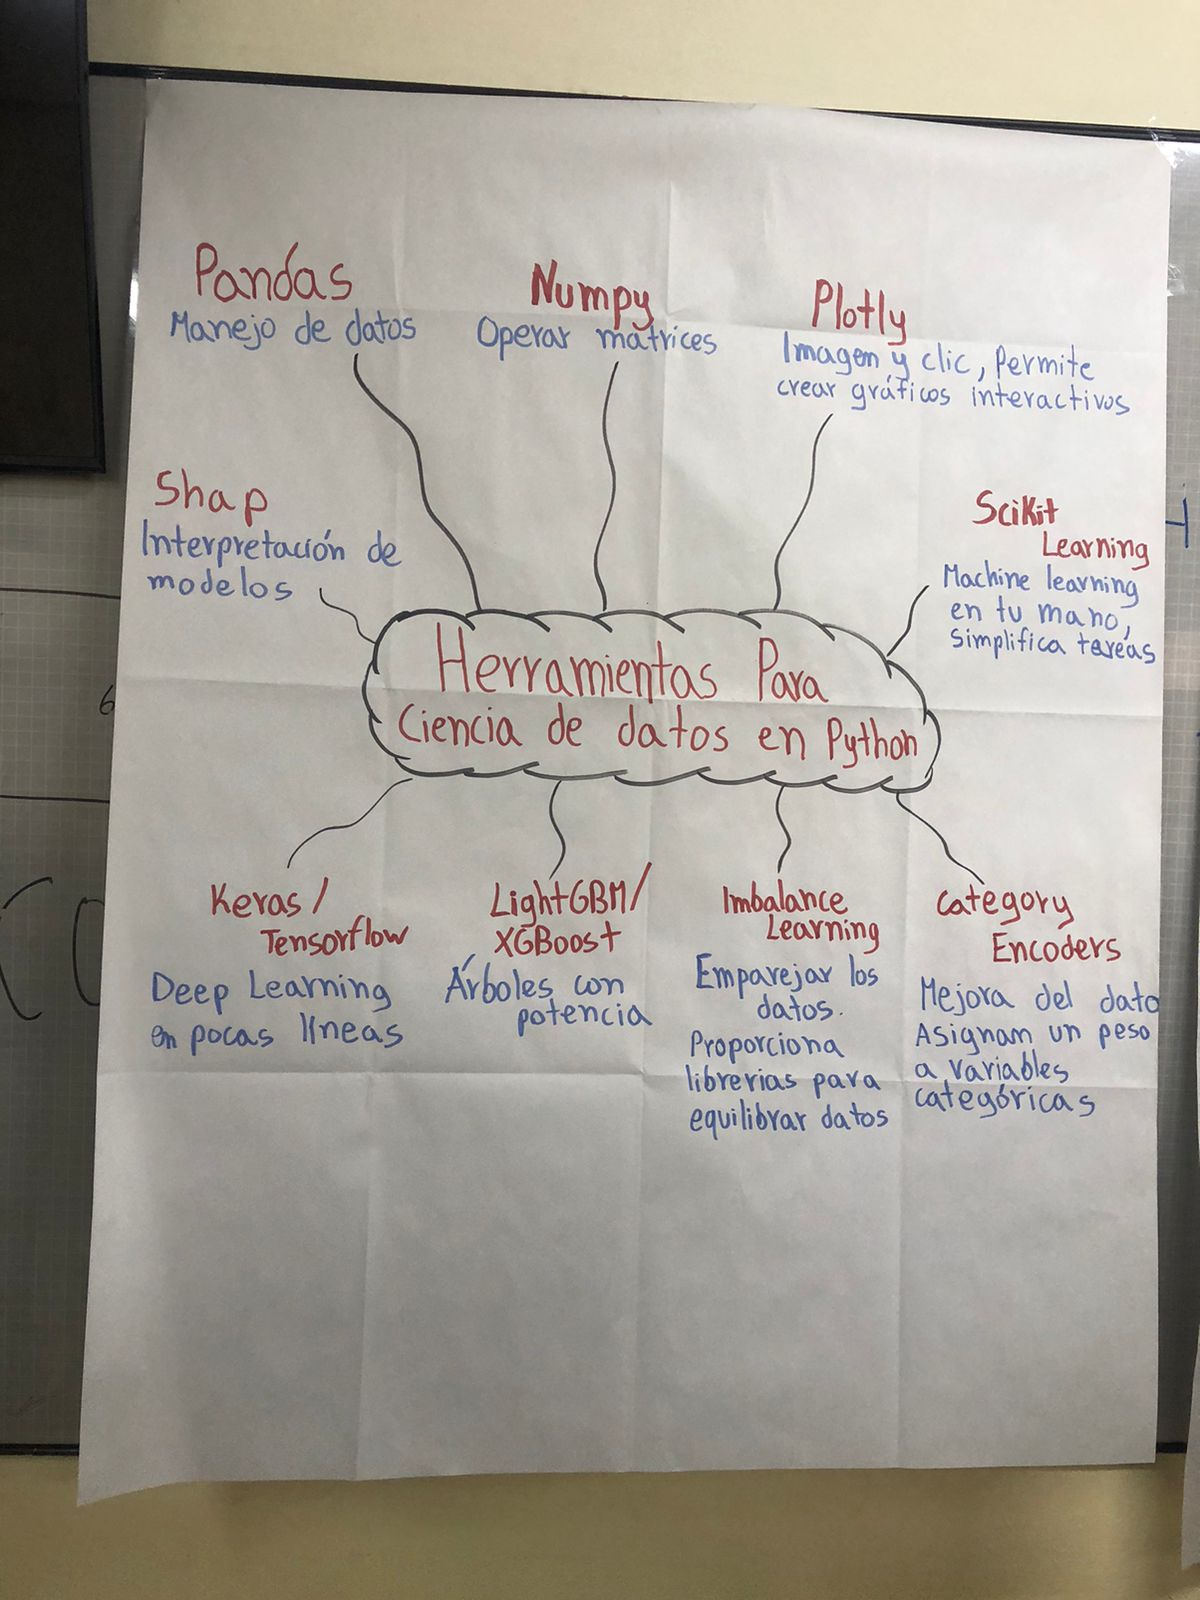 Pandas
Manejo de datos
Numpy
Operar matrices
Plotly
Imagen y clic, Permite
crear gráficos interactivos
Shap
Interpretación de
modelos
SciKit
Learning
Machine learning
en tu mano,
simplifica tareas
Herramientas Para
Ciencia de datos en Python
Keras/
Tensorflow
Deep Learning
en pocas líneas
LightGBM/
XGBoost
Árboles con
potencia
Imbalance
Learning
Emparejar los
datos.
Proporciona
librerias para
equilibrar datos
Category
Encoders
Mejora del dato
Asignam un peso
a variables
categóricas
6
CO